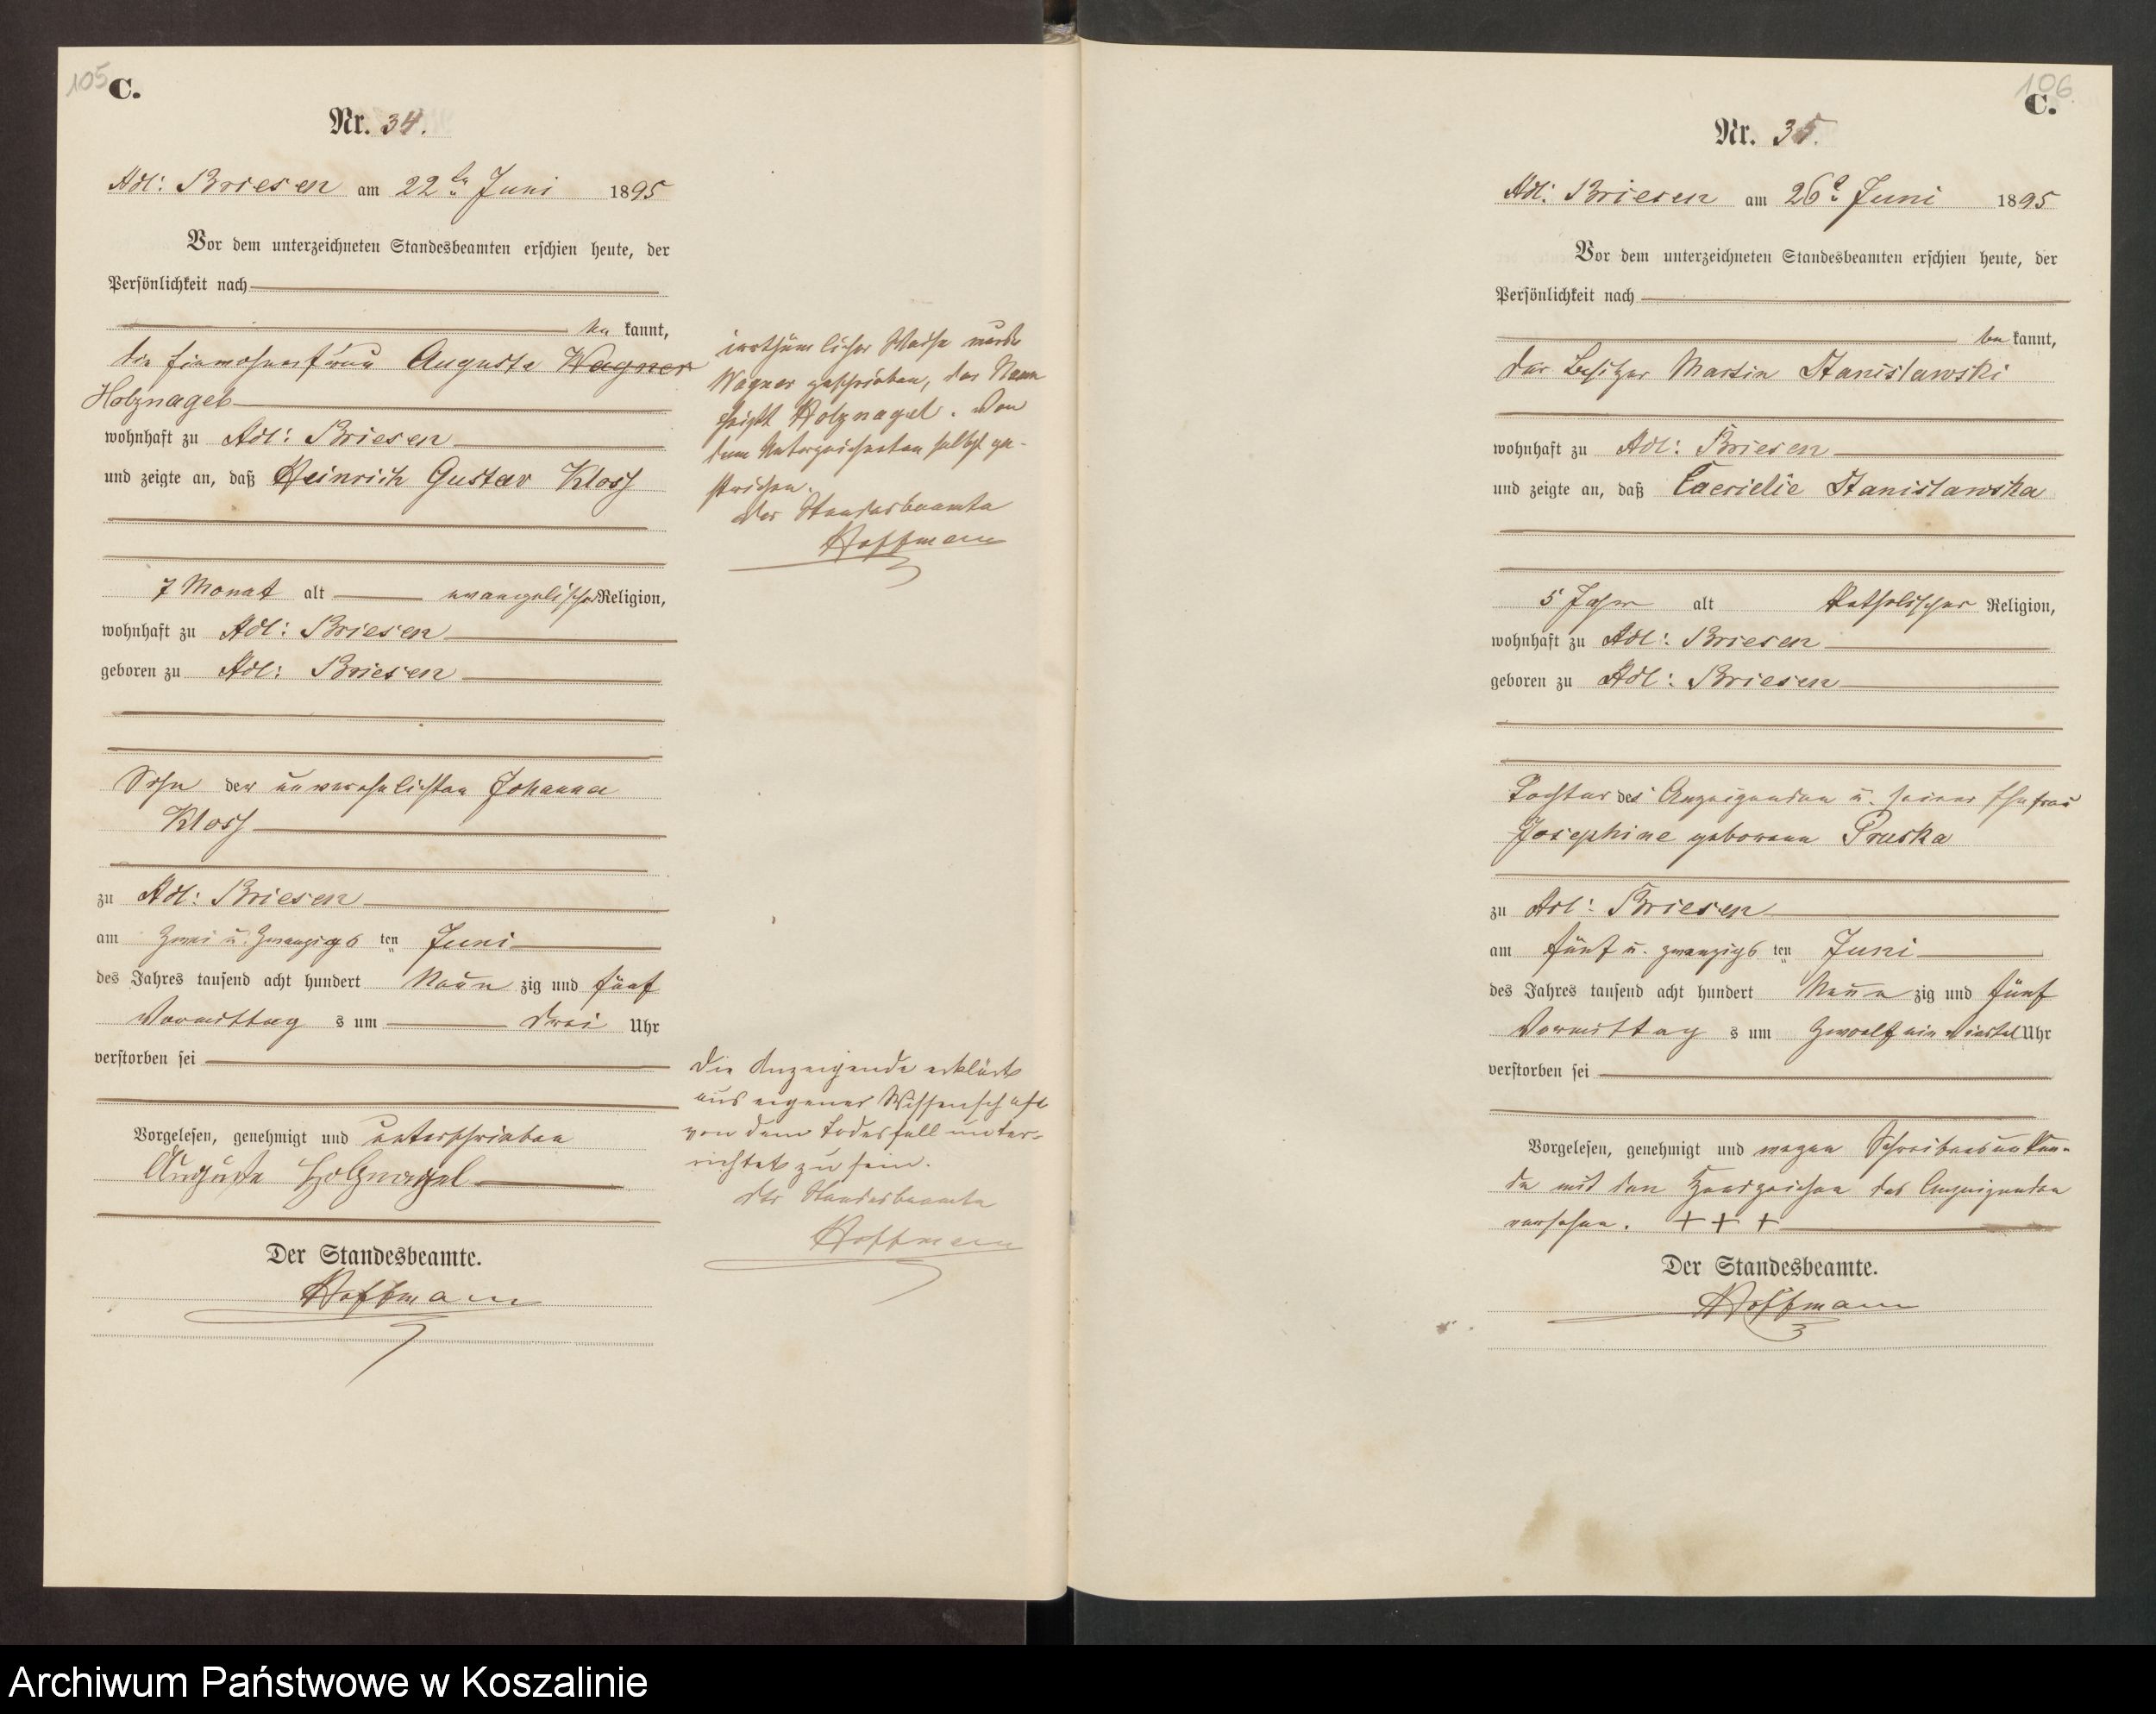 105
C.
Nr. 34.
Adl: Briesen am 22ten Juni 1895
Vor dem unterzeichneten Standesbeamten erschien heute, der
Persönlichkeit nach
be kannt,
die Einwohnerfrau Auguste Wagner
Holznagel
wohnhaft zu Adl: Briesen
und zeigte an, daß Heinrich Gustav Kloss
7 Monat alt evangelischer Religion,
wohnhaft zu Adl: Briesen
geboren zu Adl: Briesen
Sohn der unverehelichten Johanna
Kloss
zu Adl: Briesen
am zwei u. zwanzigs ten Juni
des Jahres tausend acht hundert Neun zig und fünf
Vormittag s um drei Uhr
verstorben sei
Vorgelesen, genehmigt und unterschrieben
Auguste Holznagel
Der Standesbeamte.
Hoffmann
irrthümlicher Weise wurde
Wagner geschrieben, der Name
heißt Holznagel. Von
dem Unterzeichneten selbst ge-
strichen.
Der Standesbeamte
Hoffmann
Die Anzeigende erklärte
aus eigener Wissenschaft
von dem Todesfall unter-
richtet zu sein.
Der Standesbeamte
Hoffmann
106
C.
Nr. 35.
Adl: Briesen am 26t Juni 1895
Vor dem unterzeichneten Standesbeamten erschien heute, der
Persönlichkeit nach
be kannt,
der Besitzer Martin Stanislawski
wohnhaft zu Adl: Briesen
und zeigte an, daß Stanislawska
5 Jahr alt katholischer Religion,
wohnhaft zu Adl: Briesen
geboren zu Adl: Briesen
Tochter des Anzeigenden u. seiner Ehefrau
Josephine geborene Pruska
zu Adl: Briesen
am fünf u. zwanzigs ten Juni
des Jahres tausend acht hundert Neun zig und fünf
Vormittag s um zwoelf ein viertel Uhr
verstorben sei
Vorgelesen, genehmigt und wegen Schreibensunkun-
de mit den Handzeichen des Anzeigenden
versehen. + + +
Der Standesbeamte.
Hoffmann
Archiwum Państwowe w Koszalinie